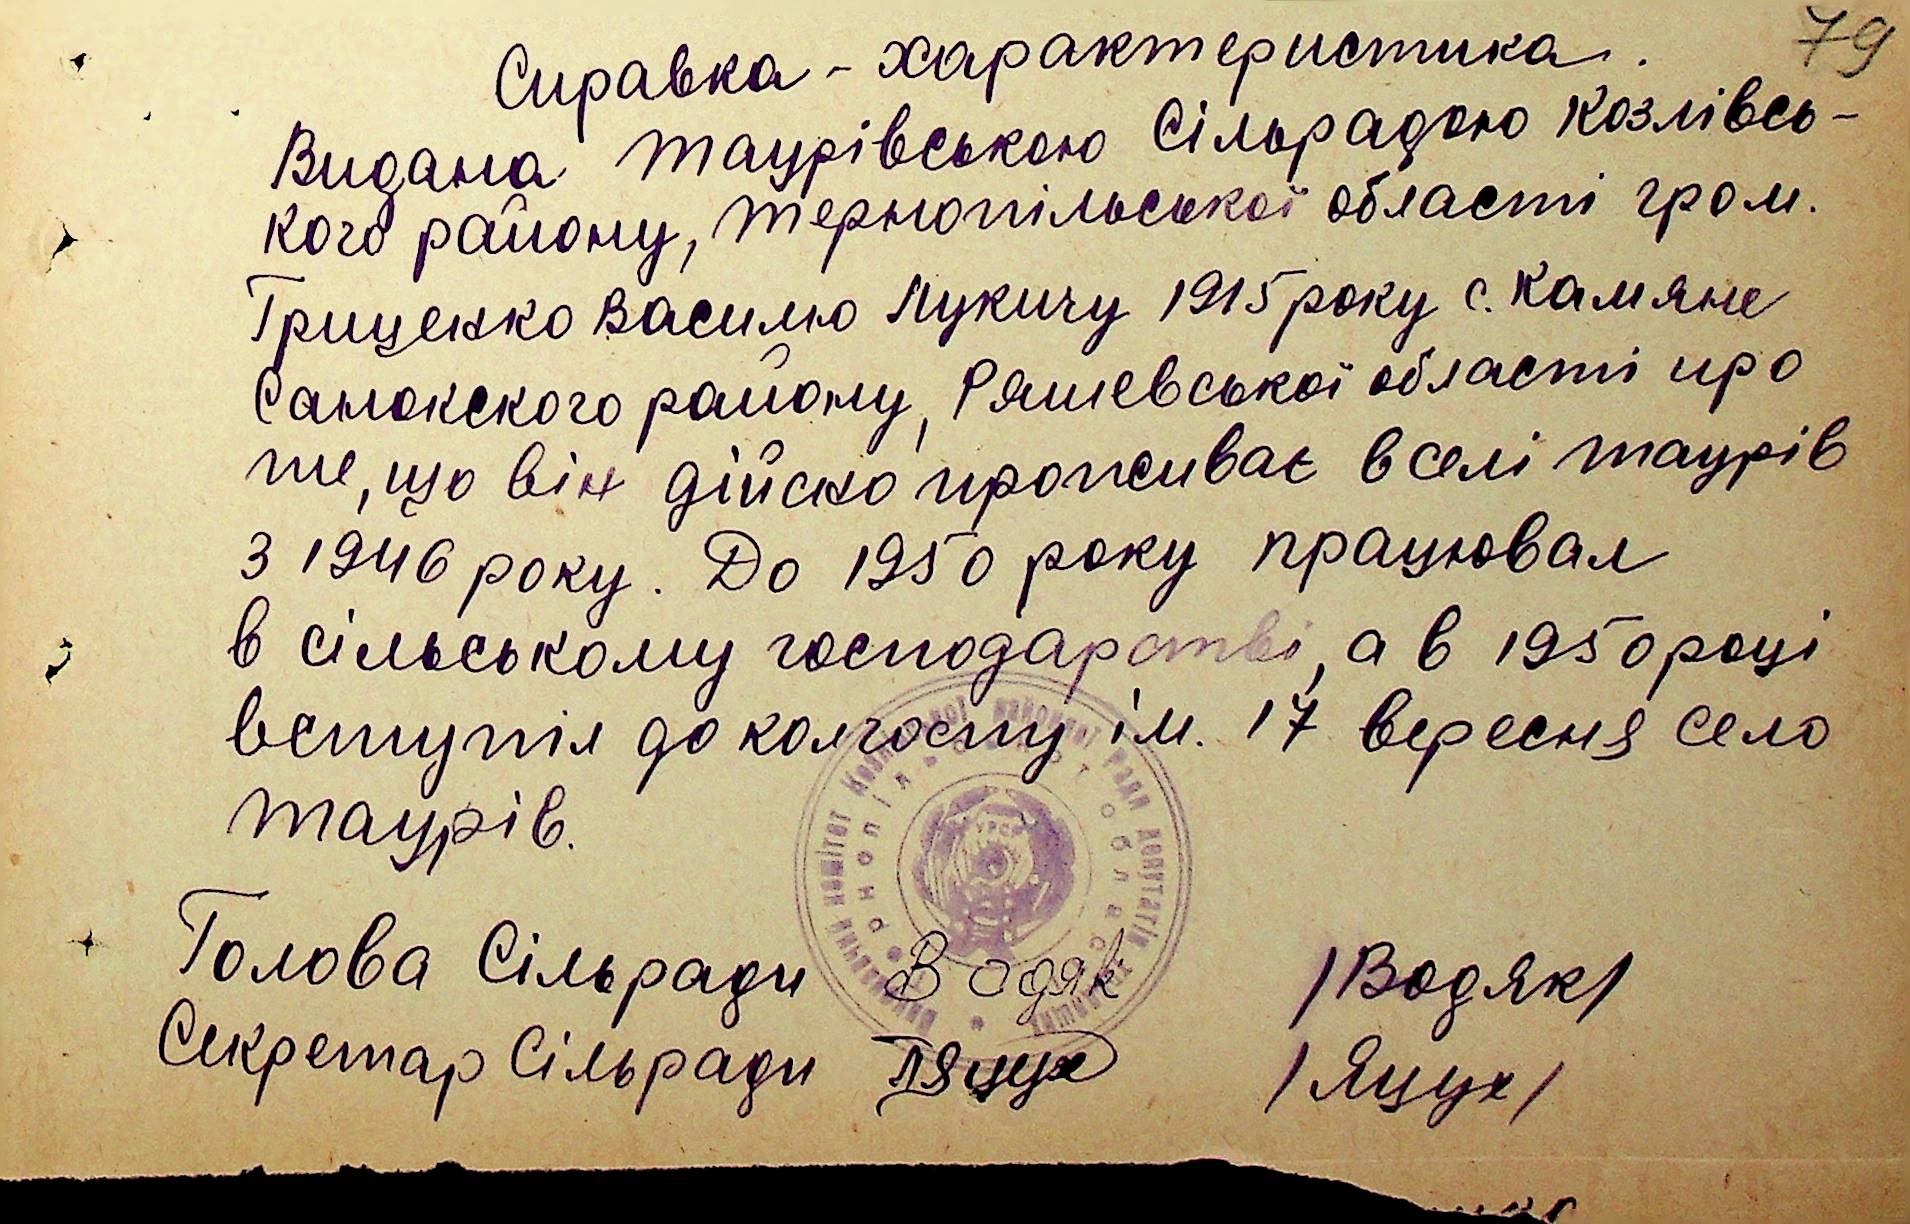 79
Справка - характеристика.
Видана Таурівською Сільрадою Козлівсь-
кого району, Тернопільської області гром.
Гриценко Василю Лукичу 1915 року с. Камяне
Санокского району, Ряшевської області про
те, що він дійсно проживає в селі Таурів
з 1946 року. До 1950 року працювал
в сільському господарстві, а в 1950 році
вступіл до колгоспу ім. 17 вересня село
Таурів.
Голова Сільради Водяк /Водяк/
Секретар Сільради Яцух /Яцух/
Виконавчий комітет районної ради депутатів трудящих
Тернопіл област
УРСР